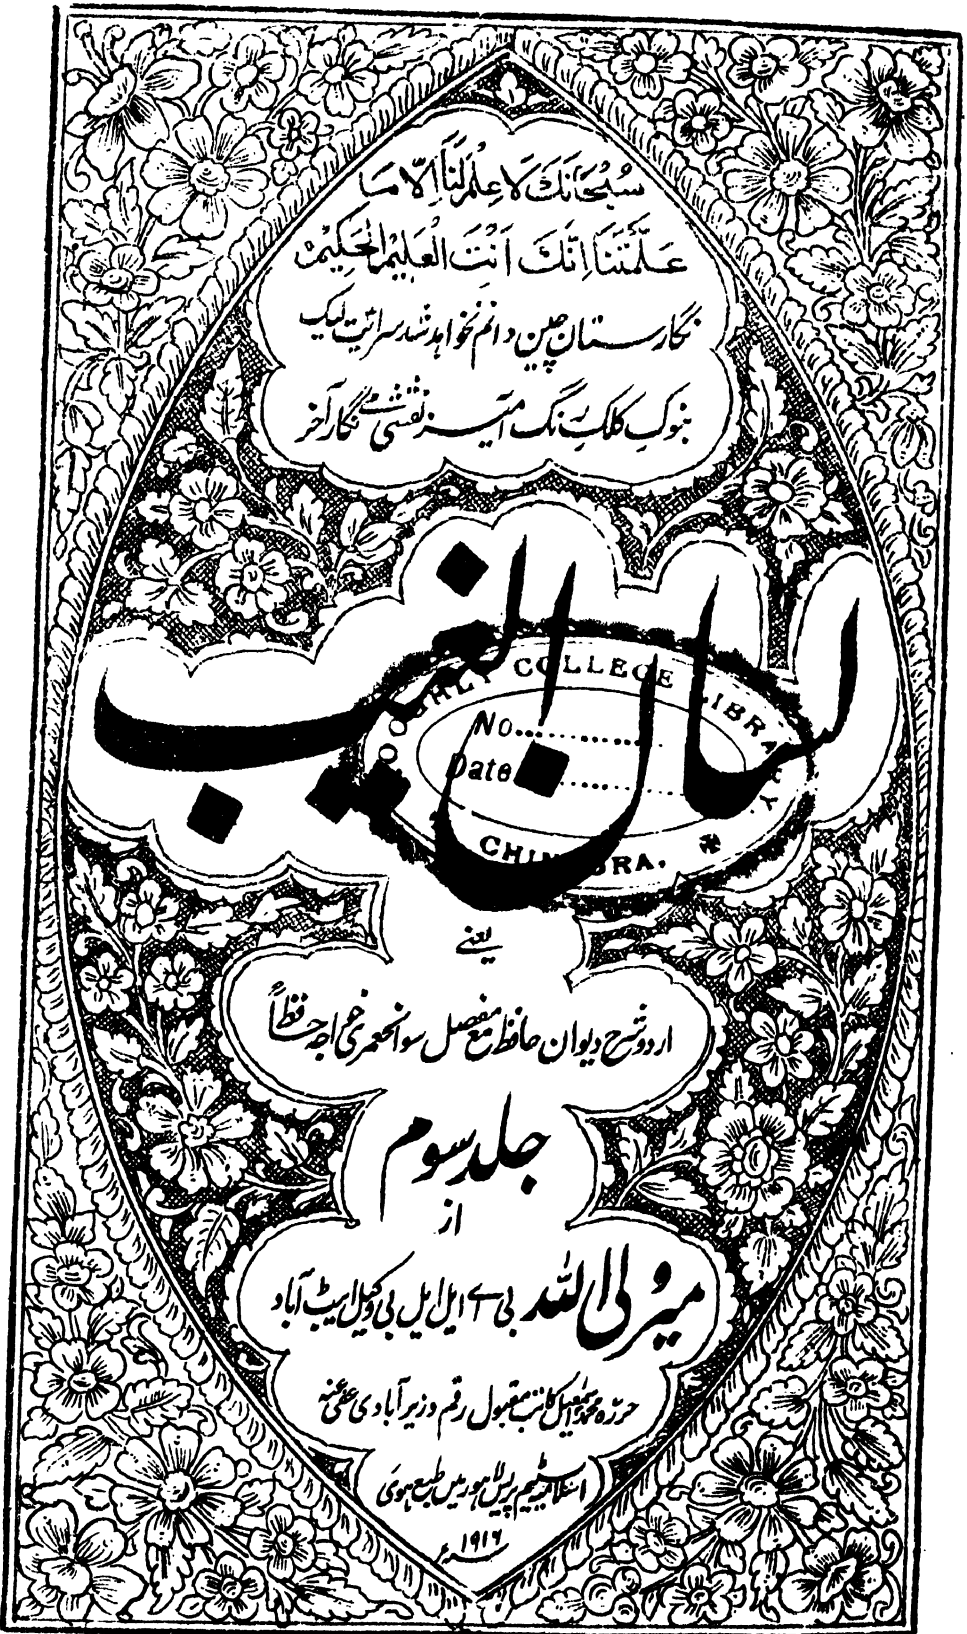 سُبْحَانَكَ لَا عِلْمَ لَنَا اِلَّا مَا
عَلَّمْتَنَا اِنَّكَ اَنْتَ الْعَلِيْمُ الْحَكِيْمُ
نگارستان چین دانم نخواهد شد سرایت لیک
بنوکِ کلکِ رنگ آمیز نقشے نگار آخر
لسان الغیب
HOOGHLY COLLEGE LIBRARY.
No.
Date
CHINSURA.
یعنے
اردو شرح دیوان حافظ مع مفصل سوانحعمری خواجہ حافظؒ
جلد سوم
از
میر ولی اللہ بی اے ایل ایل بی وکیل ایبٹ آباد
حررہ محمد اسمٰعیل کاتب مقبول رقم وزیر آبادی عفی عنہ
اسلامیہ سٹیم پریس لاہور میں طبع ہوئی
۱۹۱۶ء